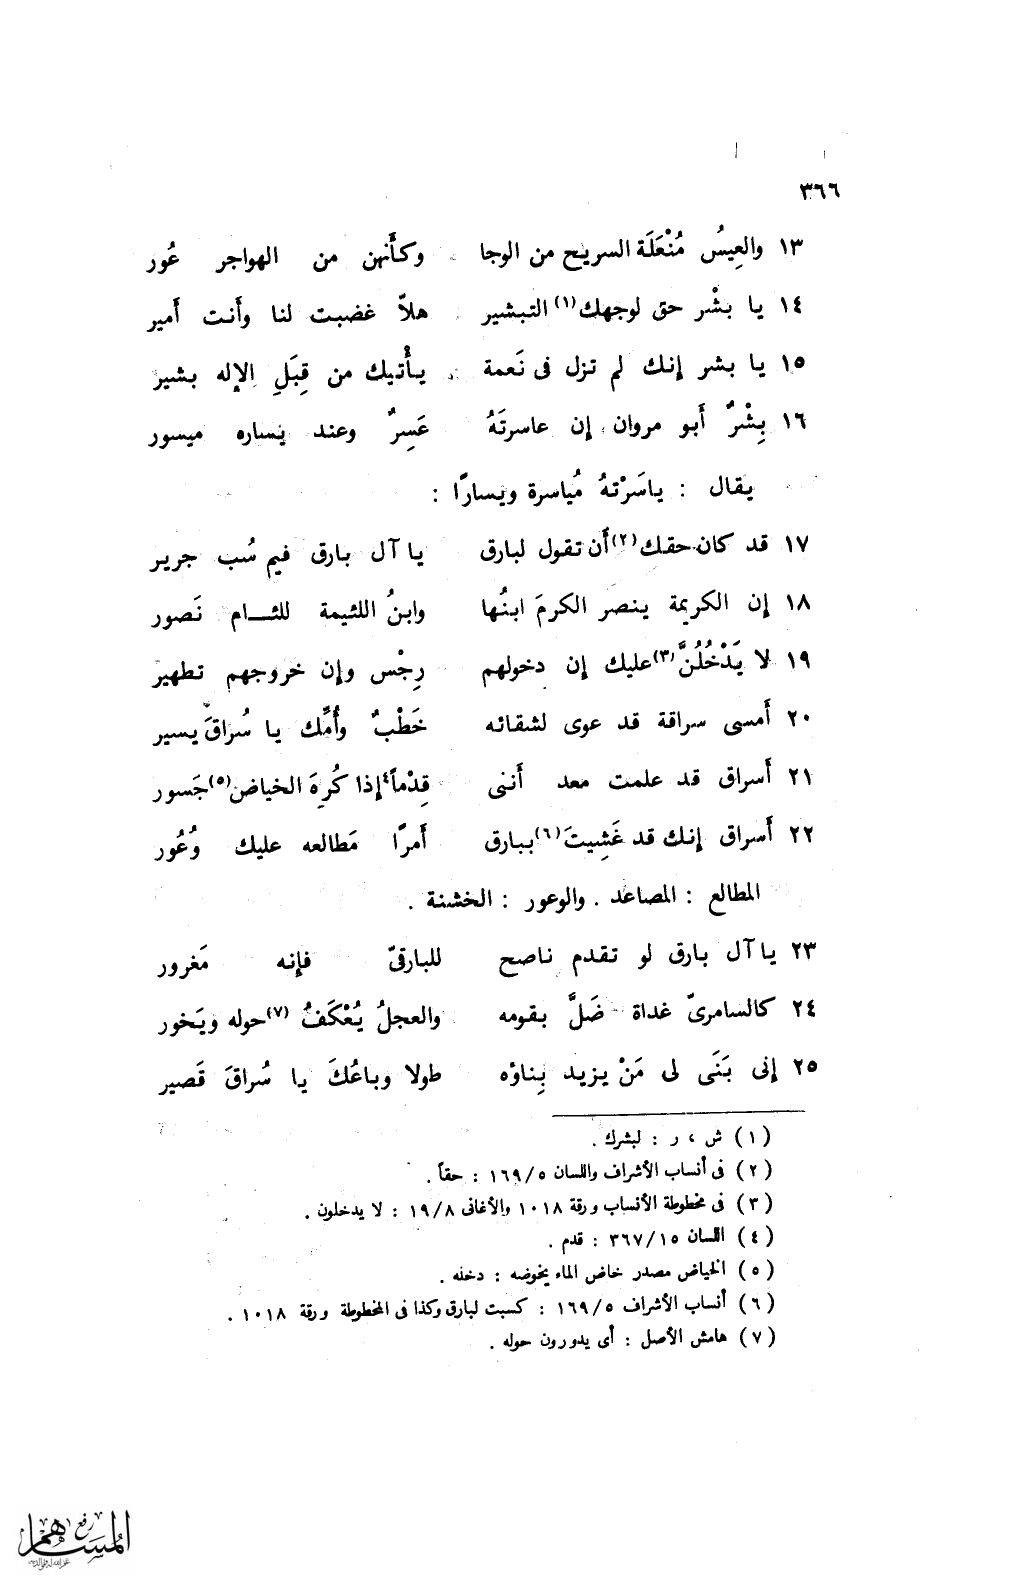 ٣٦٦
١٣ والعِيسُ مُنْعَلَة السريح من الوجا وكأَنهن من الهواجر عُور
١٤ يا بشْر حق لوجهك (١) التبشير هلاّ غضبت لنا وأَنت أَمير
١٥ يا بشر إنك لم تزل فى نَعمة يأْتيك من قِبَلِ الإله بشير
١٦ بِشْرٌ أَبو مروان إن عاسرتَهُ عَسِرٌ وعند يساره ميسور
يقال : ياسَرْتهُ مُياسرة ويسارًا :
١٧ قد كان حقك (٢) أَن تقول لبارق يا آل بارق فيم سُب جرير
١٨ إن الكريمة ينصر الكرمَ ابنُها وابنُ اللئيمة للئـــام نَصور
١٩ لا يَدْخُلُنَّ (٣) عليك إن دخولهم رِجْس وإن خروجهم تطهير
٢٠ أَمسى سراقة قد عوى لشقائه خَطْبٌ وأُمِّك يا سُراقَ يسير
٢١ أَسراق قد علمت معد أَننى قِدْماً ٤ إذا كُرِهَ الخياض (٥) جَسور
٢٢ أَسراق إنك قد غَشِيتَ (٦) ببارق أَمرًا مَطالعه عليك وُعُور
المطالع : المصاعد . والوعور : الخشنة .
٢٣ يا آل بارق لو تقدم ناصح للبارقىّ فإنه مَغرور
٢٤ كالسامرىّ غداة ضَلَّ بقومه والعجلُ يُعْكَفُ (٧) حوله ويَخور
٢٥ إنى بَنَى لى مَنْ يزيد بِناؤه طولا وباعُكَ يا سُراقَ قَصير
(١) ش ، ر : لبشرك .
(٢) فى أنساب الأشراف واللسان ٥/١٦٩ : حقاً .
(٣) فى مخطوطة الأنساب ورقة ١٠١٨ والأغانى ٨/١٩ : لا يدخلون .
(٤) اللسان ١٥/٣٦٧ : قدم .
(٥) الخياض مصدر خاض الماء يخوضه : دخله .
(٦) أنساب الأشراف ٥/١٦٩ : كسبت لبارق وكذا فى المخطوطة ورقة ١٠١٨ .
(٧) هامش الأصل : أى يدورون حوله .
رفع
المساهم